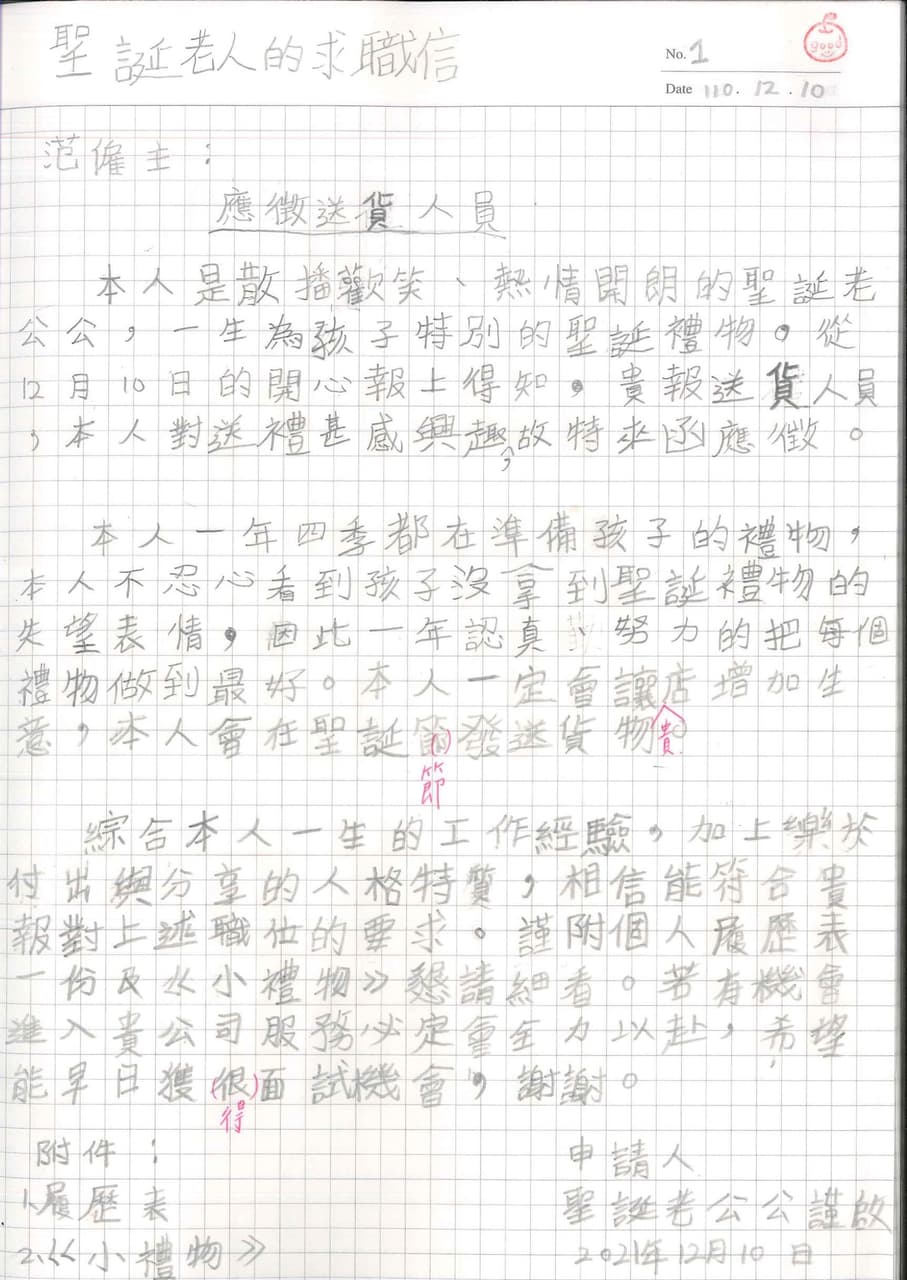 聖誕老人的求職信
No. 1
good
Date 110.12.10
范僱主：
應徵送貨人員
本人是散播歡笑、熱情開朗的聖誕老
公公，一生為孩子特別的聖誕禮物。從
12月10日的開心報上得知。貴報送貨人員
，本人對送禮甚感興趣，故特來函應徵。
本人一年四季都在準備孩子的禮物，
本人不忍心看到孩子沒拿到聖誕禮物的
失望表情，因此一年認真、努力的把每個
禮物做到最好。本人一定會讓店增加生
貴
意，本人會在聖誕節發送貨物。
節
綜合本人一生的工作經驗，加上樂於
付出與分享的人格特質，相信能符合貴
報對上述職位的要求。謹附個人履歷表
一份及《小禮物》懇請細看。若有機會
進入貴公司服務必定會全力以赴，希望
能早日獲(很)面試機會，謝謝。
得
附件：
申請人
1.履歷表
聖誕老公公謹啟
2.《小禮物》
2021年12月10日